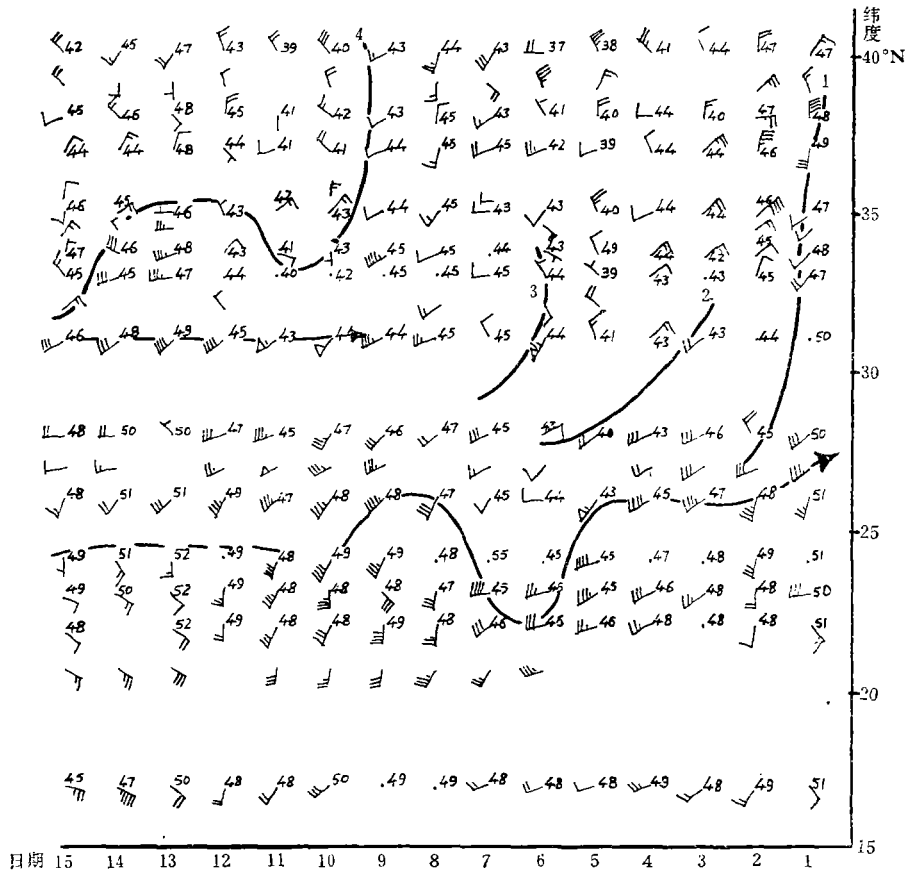 纬
度
42 45 47 43 39 40 4 43 44 43 37 38 41 44 47 47 40°N
1
45 46 48 45 41 42 43 45 43 41 40 44 40 47 48
44 44 48 44 41 41 44 45 45 42 39 44 44 46 49
46 45 46 43 42 43 44 45 43 43 40 44 42 46 47 35
45
47 46 48 43 41 43 45 45 44 43 49 44 42 48
45 45 47 44 40 42 45 45 45 44 39 43 43 45 47
3 2
46 48 49 45 43 44 44 45 45 44 41 43 43 44 50
30
48 50 50 47 45 47 46 47 45 43 40 43 46 45 50
48 51 51 49 47 48 48 47 45 44 43 45 47 48 51
25
49 51 52 49 48 49 49 48 55 45 45 47 48 49 51
49 50 52 49 48 48 48 47 45 45 45 46 48 48 50
48 52 48 48 48 49 48 46 46 46 48 48 48 51
20
45 47 50 48 48 50 49 49 48 48 48 49 48 49 51
15
日期 15 14 13 12 11 10 9 8 7 6 5 4 3 2 1